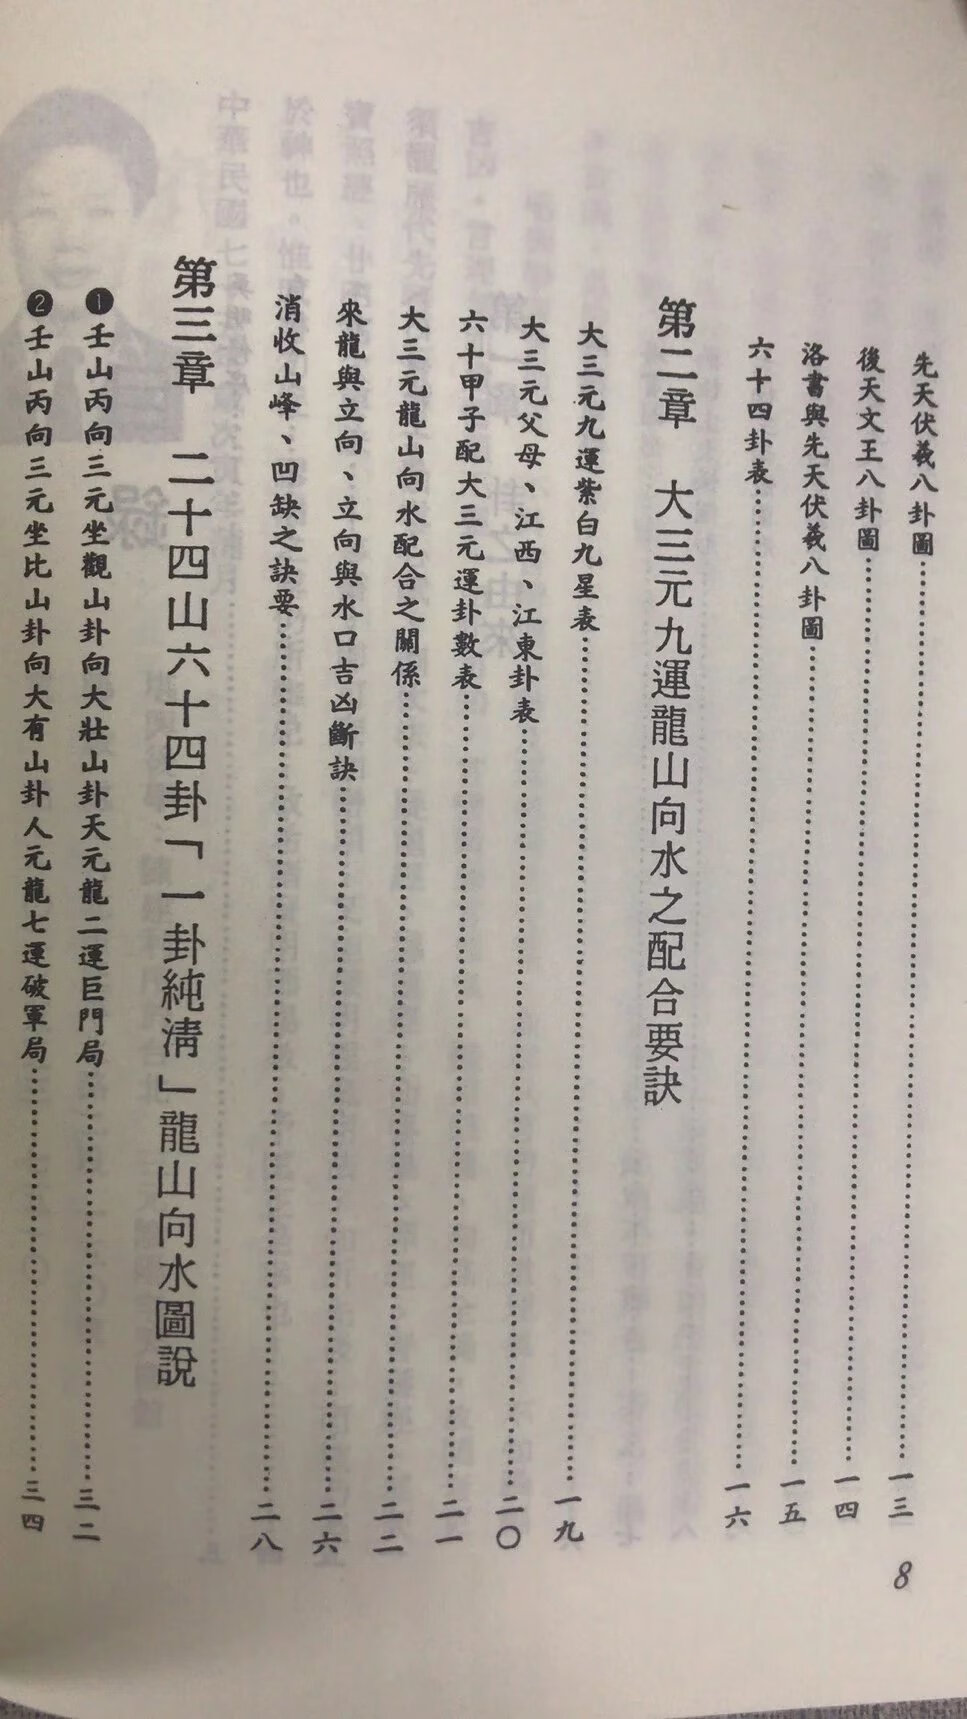 先天伏羲八卦圖……一三
後天文王八卦圖……一四
洛書與先天伏羲八卦圖……一五
六十四卦表……一六
第二章 大三元九運龍山向水之配合要訣
大三元九運紫白九星表……一九
大三元父母、江西、江東卦表……二〇
六十甲子配大三元運卦數表……二一
大三元龍山向水配合之關係……二二
來龍與立向、立向與水口吉凶斷訣……二六
消收山峰、凹缺之訣要……二八
第三章 二十四山六十四卦「一卦純清」龍山向水圖說
❶壬山丙向三元坐觀山卦向大壯山卦天元龍二運巨門局……三二
❷壬山丙向三元坐比山卦向大有山卦人元龍七運破軍局……三四
8